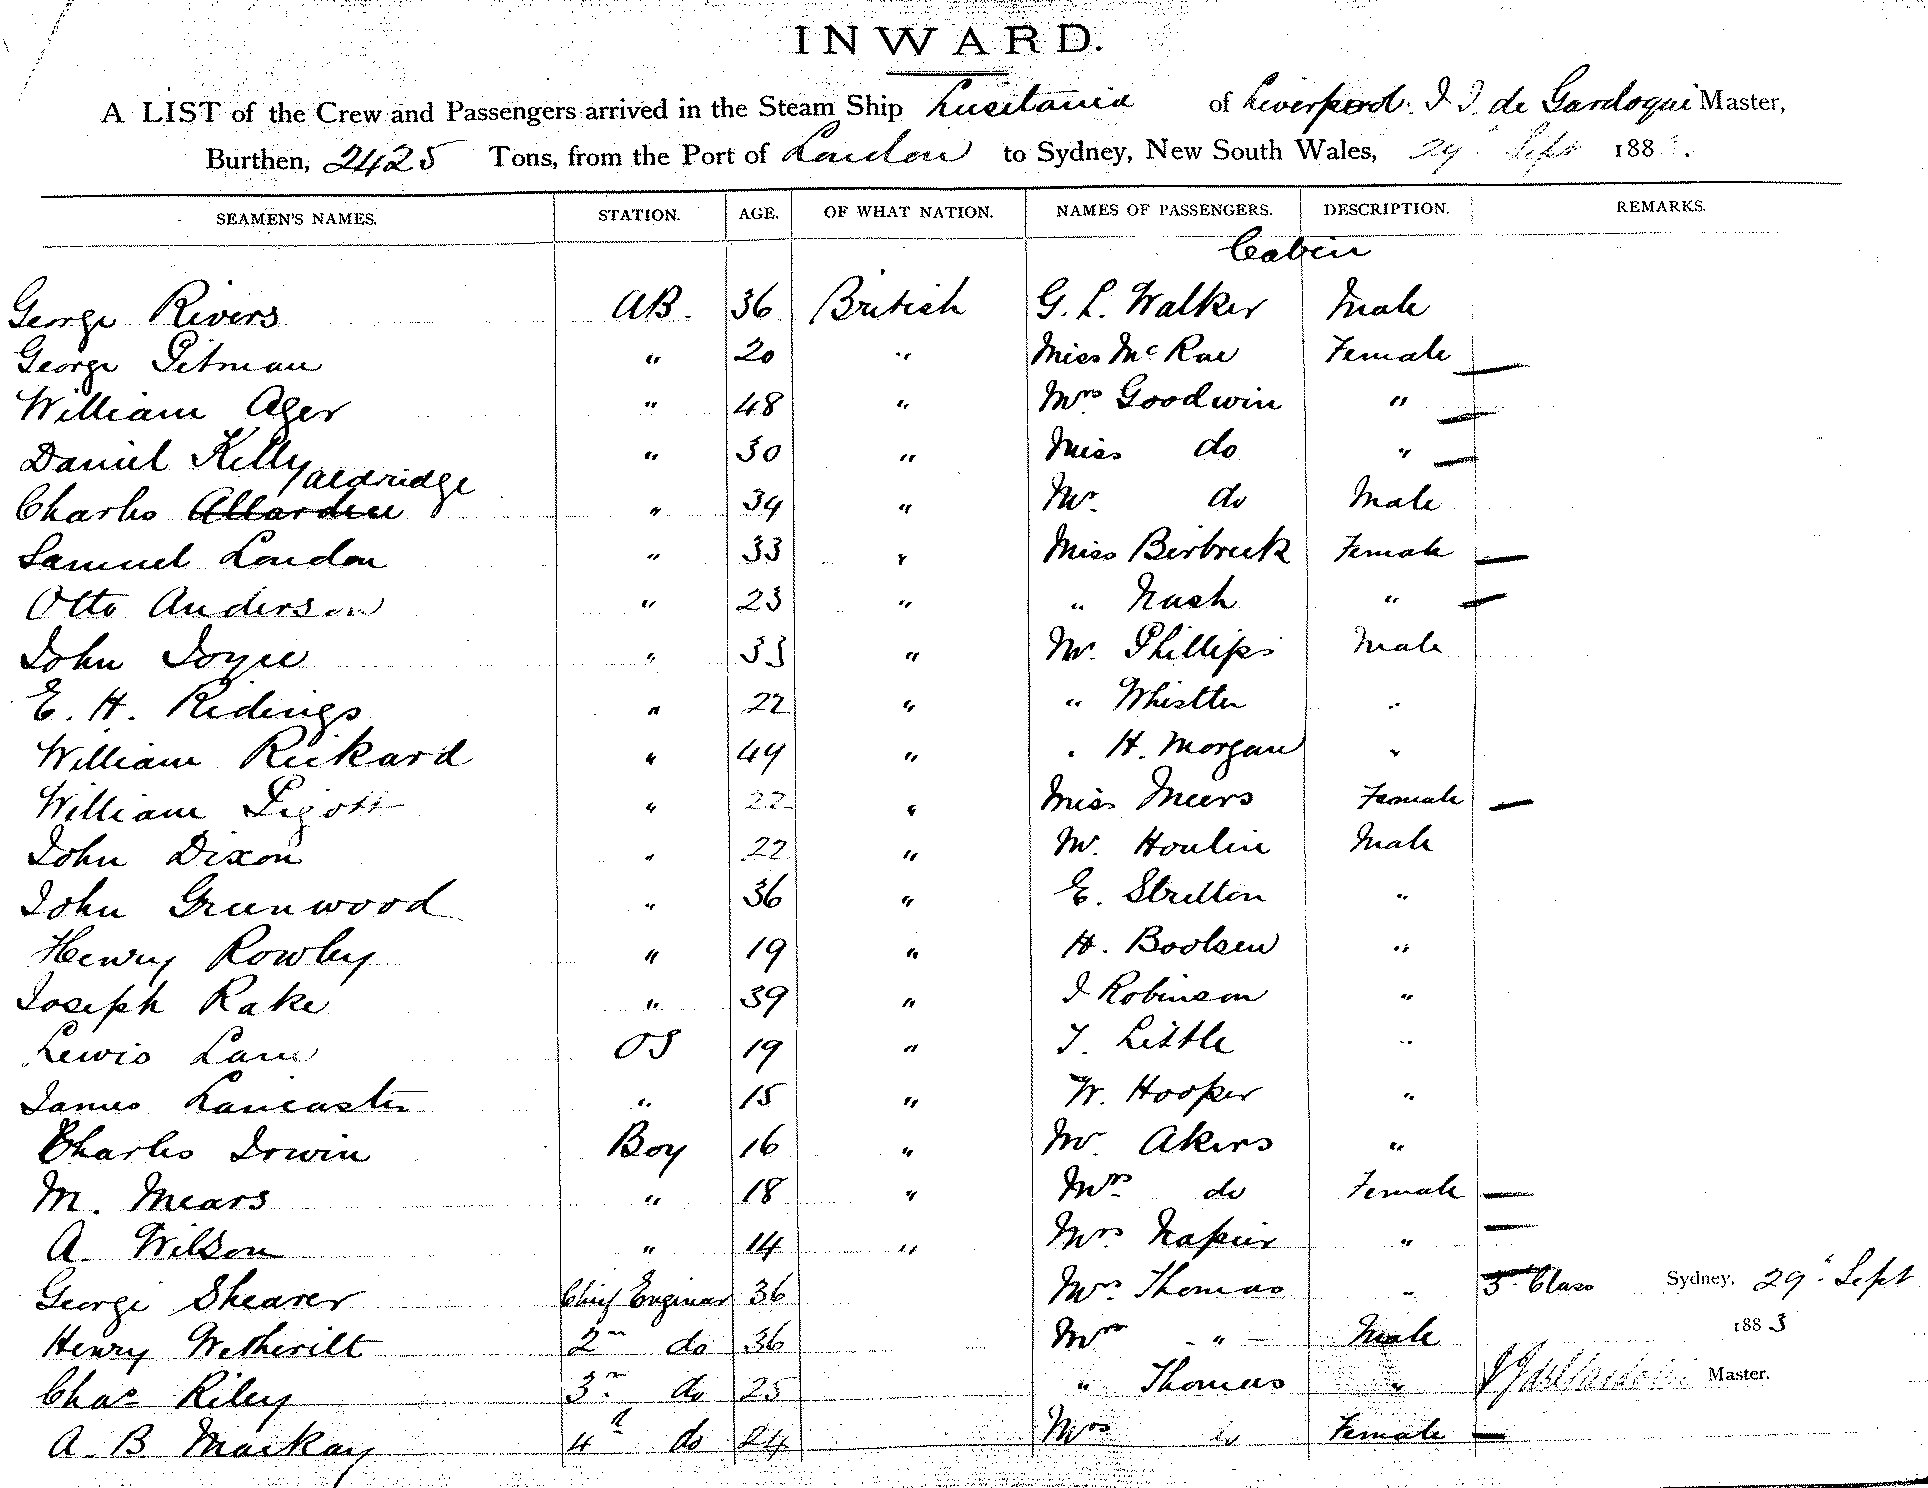 INWARD.
A LIST of the Crew and Passengers arrived in the Steam Ship Lusitania of Liverpool. J. J. de Gardoqui Master,
Burthen, 2425 Tons, from the Port of London to Sydney, New South Wales, 29" Sept 188
SEAMEN'S NAMES. STATION. AGE. OF WHAT NATION. NAMES OF PASSENGERS. DESCRIPTION. REMARKS.
Cabin
George Rivers AB. 36 British G. L. Walker Male
George Pitman " 20 " Miss McRae Female
William Ager " 48 " Mrs Goodwin "
Daniel Kelly " 30 " Miss do "
Aldridge
Charles " 34 " Mr. do Male
Samuel London " 33 " Miss Birbreck Female
Otto Anderson " 23 " " Nash "
John Joyce " 33 " Mr. Phillips Male
E. H. Ridings " 22 " " Whistler "
William Rickard " 49 " " H. Morgan "
William Pigott " 22 " Miss Meers Female
John Dixon " 22 " Mr. Houlin Male
John Greenwood " 36 " E. Stretton "
Henry Rowley " 19 " H. Boolsen "
Joseph Rake " 39 " J Robinson "
Lewis Lane OS 19 " T. Little "
James Lancaster " 15 " W. Hooper "
Charles Irwin Boy 16 " Mr Akers "
M. Mears " 18 " Mrs do Female
A. Wilson " 14 " Mrs Napier "
George Shearer Chief Enginear 36 Mrs Thomas " 3rd Class Sydney, 29" Sept
Henry Wetherilt 2nd do 36 Mrs " Male 1883
Chas Riley 3rd do 25 " Thomas " Master.
A. B Mackay 4th do 24 Mrs do Female